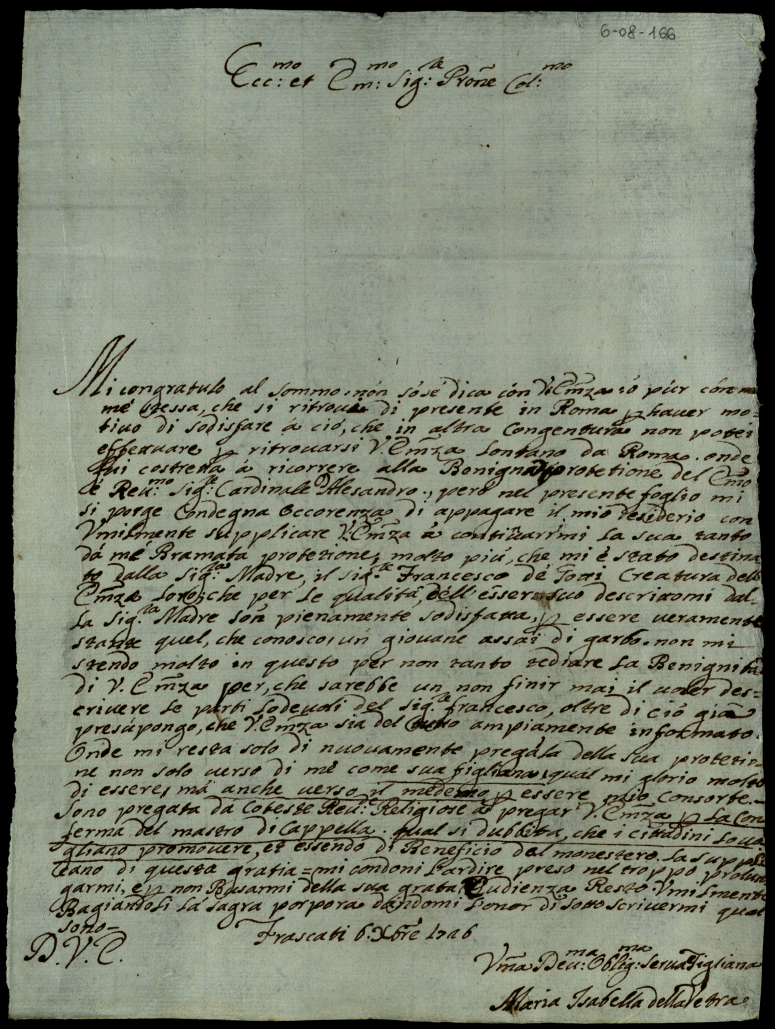 6-08-166
Ecc:mo et Em:mo Sig:re Prōne Col:mo
Mi congratulo al sommo, nón só se dica cón V: Em̃za, ó pur cón
mé stessa, che si ritrova di presente in Roma p haver mo-
tivo di sodisfare á ció, che in altra Congentura non potei
effettuare p ritrovarsi V. Em̃za Lontano da Roma. onde
fui costretta á ricorrere alla Benigna protetione del Em̃o
é Reu:mo Sig:re Cardinale Alesandro., peró nel presente foglio mi
si porge Condegna Occorenza di appagare il mio desiderio con
Vmilmente supplicare V. Em̃za á contizarmi La sua tanto
dá me Bramata protezione, molto piú, che mi é stato destina
to dalla Sig:ra Madre, il sig:re Francesco de Gori Creatura dell
Em̃za Loro, che per Le qualitá, dell'esser suo descrittomi dal-
La Sig:ra Madre son pienamente sodisfatta, p essere veramente
stante quel, che conosco, un giovane assai di garbo. non mi
stendo molto in questo per non tanto tediare La Benignitá
di V. Em̃za per, che sarebbe un non finir mai il voler des-
crivere Le parti Lodevoli del sig:re Francesco, oltre di ció giá
presúpongo, che V. Em̃za sia del tutto ampiamente informato.
Onde mi resta solo di nuovamente pregála della sua protetio-
ne non solo verso di mé come sua figliana, qual mi glorio molto
di essere, má anche verso il medemo p essere mio Consorte.
Sono pregata dá Coteste Reu:e Religiose á pregar V. Em̃za p La Con
ferma del mastro di Cappella. qual si dubbita, che i cittadini Lo vo
gliano promovere, et essendo di Beneficio del monestero. La suppli
cano di questa gratia = mi condoni L'ardire preso nel troppo prolun
garmi, e p non Busarmi della sua grata Audienza Resto Vmilmente
Bagiandoli La sagra porpora dandomi L'onor di sotto scrivermi qual
sono-
Frascati 6. Xbre 1726
D. V. E.
Vm̃a Deu:ma Oblig:ma Serva Figliana
Maria Isabella della Petra